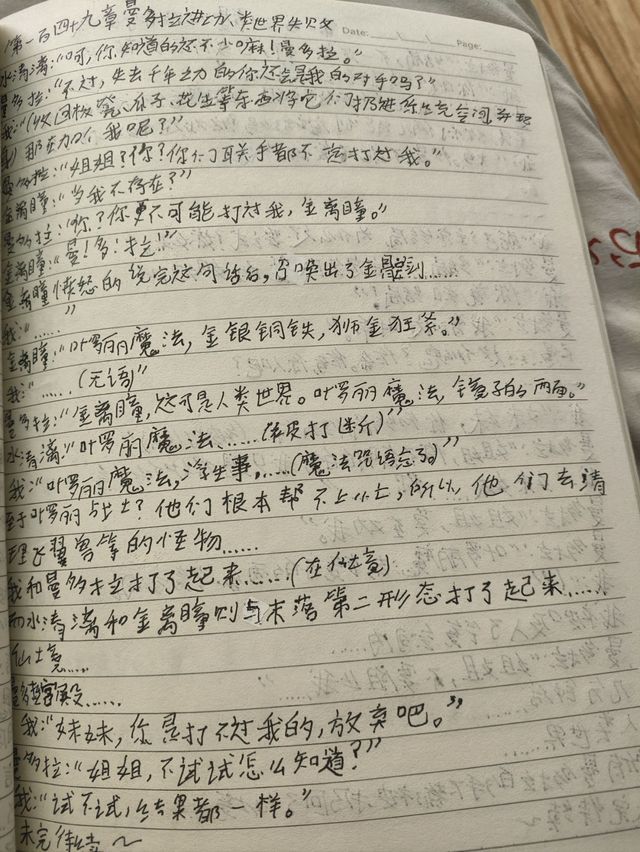 第一百四十九章曼多拉进攻人类世界失败
Date:
Page:
水清漓:“呵,你知道的还不少嘛!曼多拉。”
曼多拉:“不过,失去千年之力的你还会是我的对手吗?”
我:“(收回板凳、瓜子、花生等东西将它们扔进系统空间
我)那在加个我呢?”
曼多拉:“姐姐?你?你们联手都不一定打过我。”
金离瞳:“当我不存在?”
曼多拉:“你?你更不可能打过我,金离瞳。”
金离瞳:“曼!多!拉!”
金离瞳愤怒的说完这句话后,召唤出了金
我:“……”
金离瞳:“叶罗丽魔法,金银铜铁,狮金狂
我:“……(无语)”
曼多拉:“金离瞳,这可是人类世界。叶罗丽魔法,镜子的两面。”
水清漓:“叶罗丽魔法……(被打断)”
我:“叶罗丽魔法,浮生事,……(魔法咒语忘了)”
至于叶罗丽战士?他们根本帮不上忙,所以,他们去清
理飞翼兽等的怪物……
我和曼多拉打了起来……(在仙境)
而水清漓和金离瞳则与末落第二形态打了起来……
仙境……
曼多拉宫殿……
我:“妹妹,你是打不过我的,放弃吧。”
曼多拉:“姐姐,不试试怎么知道?”
我:“试不试,结果都一样。”
未完待续~